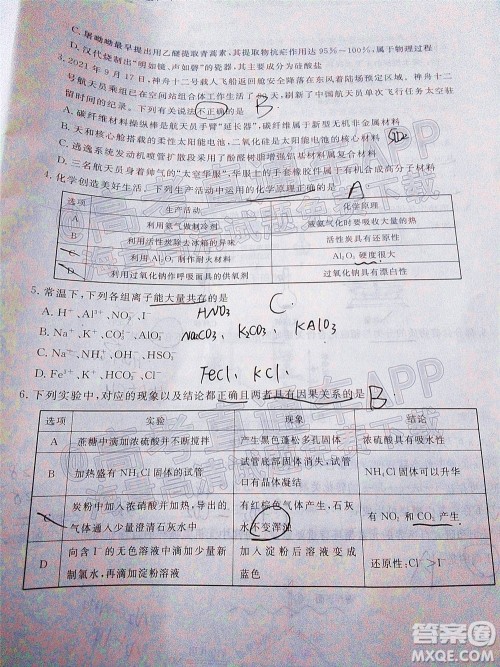 C. 屠呦呦最早提出用乙醚提取青蒿素，其提取物抗疟作用达95%～100%，属于物理过程
D. 汉代烧制出“明如镜、声如磬”的瓷器，其主要成分为硅酸盐
3. 2021年9月17日，神舟十二号载人飞船返回舱安全降落在东风着陆场预定区域，神舟十二
号航天员乘组已在空间站组合体工作生活了 天，刷新了中国航天员单次飞行任务太空驻
留时间的纪录。下列有关说法不正确的是 B
A. 碳纤维操纵棒是航天员手臂“延长器”，碳纤维属于新型无机非金属材料
B. 天和核心舱搭载的柔性太阳能电池，二氧化硅是太阳能电池的核心材料
C. 逃逸系统发动机喷管扩散段采用了酚醛树脂增强的基体结构材料属复合材料
D. 三名航天员身着帅气的“太空华服”，华服上的手套橡胶件属于有机合成高分子材料
4. 化学创造美好生活。下列生产活动中运用的化学原理正确的是 A
选项 生产活动 化学原理
A 利用氨气做制冷剂 液氨气化时要吸收大量的热
B 利用活性炭除去冰箱的异味 活性炭具有还原性
C 利用Al₂O₃制作耐火材料 Al₂O₃硬度很大
D 利用过氧化钠作呼吸面具的供氧剂 过氧化钠具有漂白性
5. 常温下，下列各组离子能大量共存的是 C
HNO3
A. H⁺、Al³⁺、NO₃⁻、I⁻
Na2CO3、K2CO3、KAlO3
B. Na⁺、K⁺、AlO₂⁻、CO₃²⁻
C. Na⁺、NH₄⁺、OH⁻、HSO₃⁻
D. Fe³⁺、K⁺、Cl⁻、NO₃⁻
FeCl、KCl
6. 下列实验中，对应的现象以及结论都正确且两者具有因果关系的是 B
选项 实验 现象 结论
A 蔗糖中滴加浓硫酸并不断搅拌 产生黑色蓬松多孔固体 浓硫酸具有吸水性
B 加热盛有NH₄Cl固体的试管 试管底部固体消失，试管口有晶体凝结 NH₄Cl固体可以升华
C 炭粉中加入浓硝酸并加热，导出的气体通入少量澄清石灰水中 有红棕色气体产生，石灰水不变浑浊 有NO₂和CO₂产生
D 向含I⁻的无色溶液中滴加少量新制氯水，再滴加淀粉溶液 加入淀粉后溶液变成蓝色 还原性：Cl⁻＞I⁻
答案圈
MXQE.COM